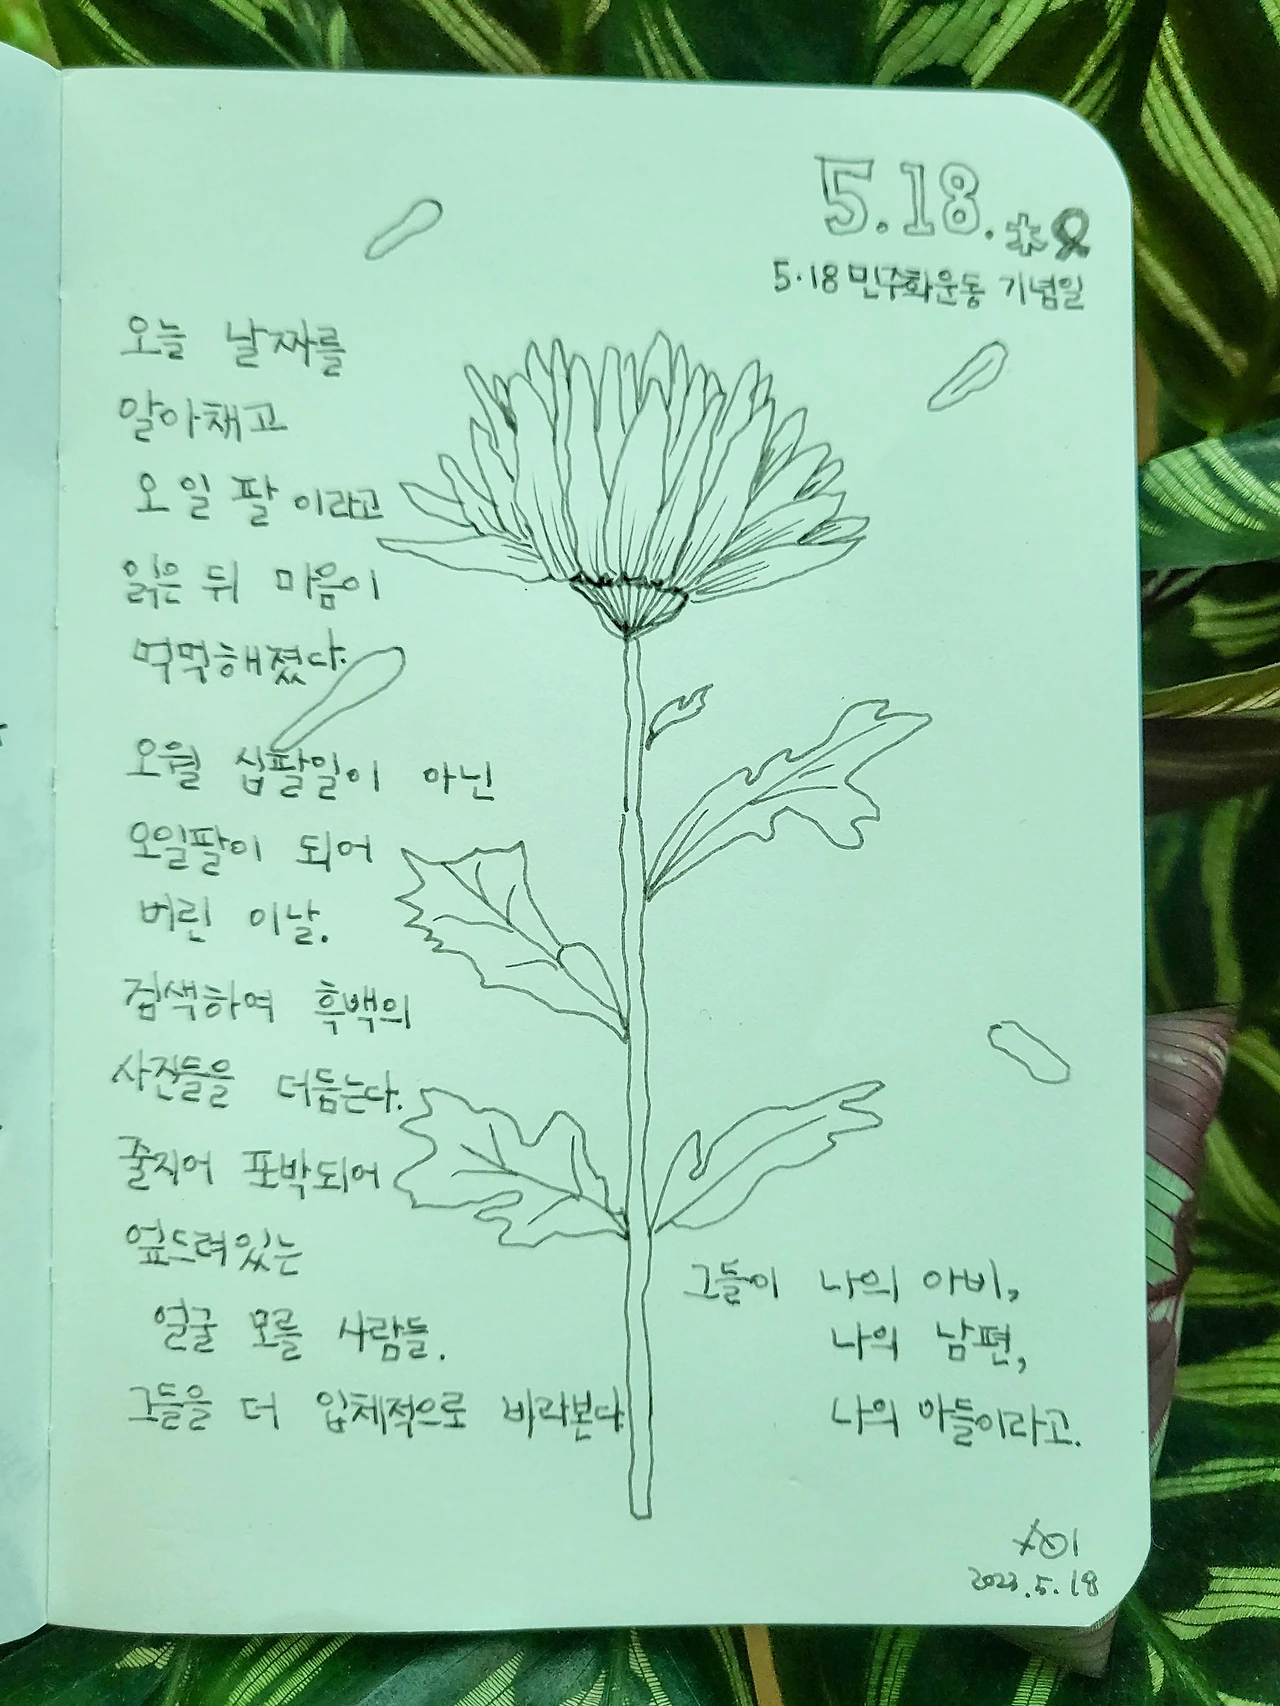 5.18.木
5·18 민주화운동 기념일
오늘 날짜를
알아채고
오일팔이라고
읽은 뒤 마음이
먹먹해졌다.
오월 십팔일이 아닌
오일팔이 되어
버린 이날.
검색하여 흑백의
사진들을 더듬는다.
줄지어 포박되어
엎드려있는
얼굴 모를 사람들.
그들을 더 입체적으로 바라본다
그들이 나의 아비,
나의 남편,
나의 아들이라고.
2023.5.18